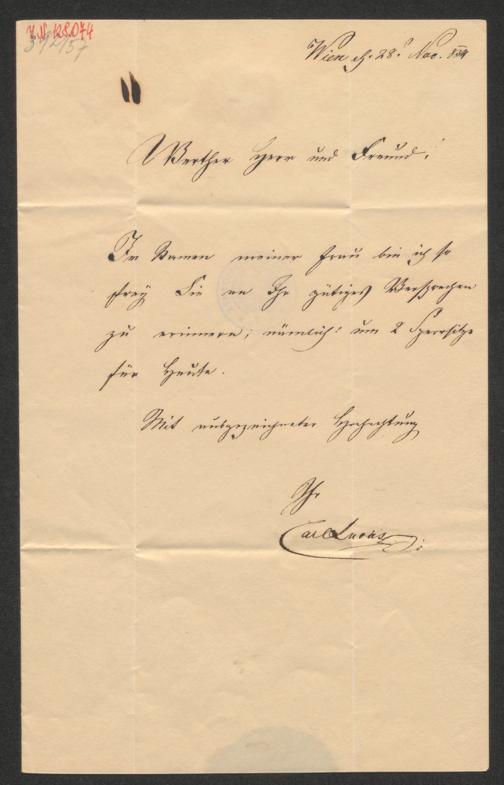 J.N. 128.074
312/57
Wien d. 28. Nov. 834
Werther Herr und Freund!
Im Namen meiner Frau bin ich so
frey Sie an Ihr gütiges Versprechen
zu erinnern; nämlich: um 2 Sperrsitze
für Heute.
Mit ausgezeichneter Hochachtung
Ihr
Carl Lucas